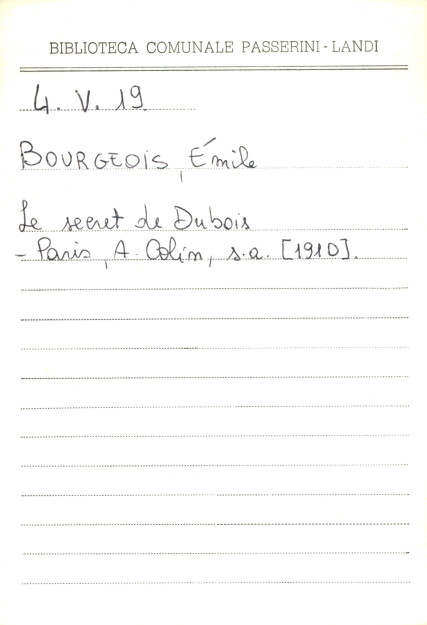 BIBLIOTECA COMUNALE PASSERINI - LANDI
4. V. 19
BOURGEOIS, Émile
Le secret de Dubois
- Paris, A. Colin, s.a. [1910].